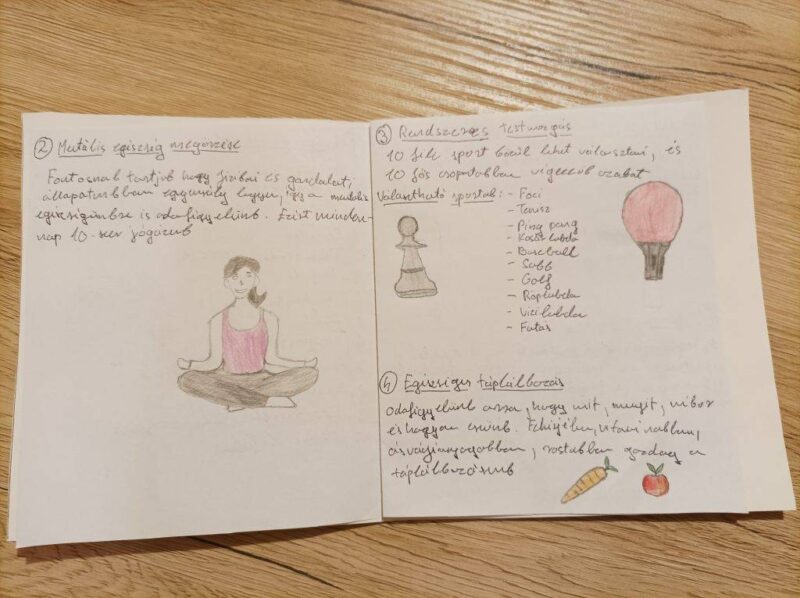 ② Mentális egészség megőrzése
Fontosnak tartjuk hogy fizikai és gondolati
állapotunkban egyensúly legyen, így a mentális
egészségünkre is odafigyelünk. Ezért minden-
nap 10-szer jógázunk
③ Rendszeres testmozgás
10 féle sport közül lehet választani, és
10 fős csoportokban végezzük ezeket
Választható sportok: - Foci
- Tenisz
- Ping pong
- Kosárlabda
- Baseball
- Sakk
- Golf
- Röplabda
- Vízilabda
- Futás
④ Egészséges táplálkozás
Odafigyelünk arra, hogy mit, mennyit, mikor
és hogyan eszünk. Fehérjében, vitaminokban,
ásványianyagokban, rostokban gazdag a
táplálkozásunk